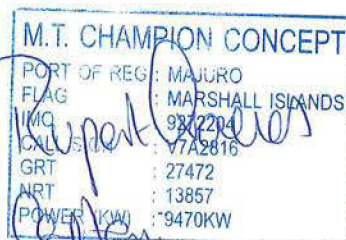 M.T. CHAMPION CONCEPT
PORT OF REG : MAJURO
FLAG : MARSHALL ISLANDS
IMO : 9272204
CALL SIGN : V7A2816
GRT : 27472
NRT : 13857
POWER (KW) : 9470KW
Rupert